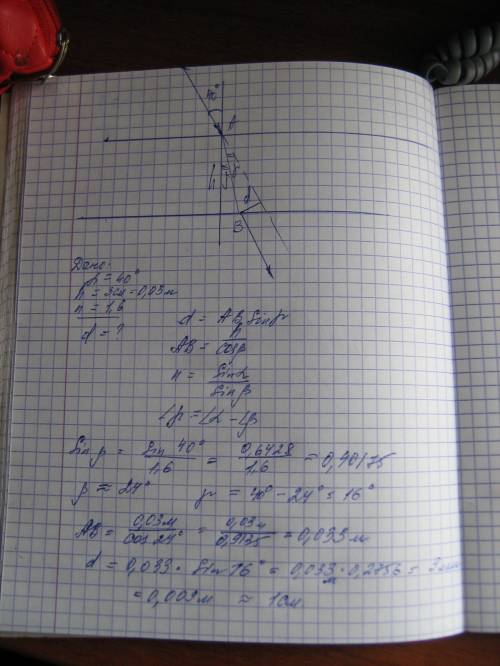 40°
A
d
B
Дано:
α = 40°
h = 3см = 0,03 м
n = 1,6
d = ?
d = AB sin γ
AB = h / cos β
n = sin α / sin β
∠γ = ∠α - ∠β
Sin β = Sin 40° / 1,6 = 0,6428 / 1,6 = 0,40175
β ≈ 24° γ = 40 - 24° = 16°
AB = 0,03 м / cos 24° = 0,03 м / 0,9135 = 0,033 м
d = 0,033 · Sin 16° = 0,033 м · 0,2756 =
= 0,009 м ≈ 1 см